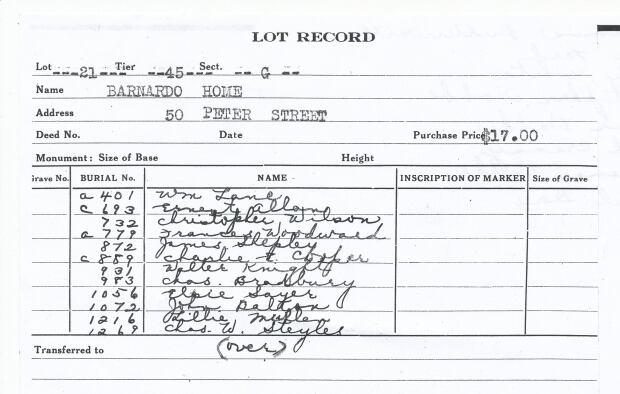 LOT RECORD
Lot ---21-- Tier --45--- Sect. -- G --
Name BARNARDO HOME
Address 50 PETER STREET
Deed No. Date Purchase Price $17.00
Monument: Size of Base Height
Grave No. BURIAL No. NAME INSCRIPTION OF MARKER Size of Grave
a 401 Wm Lane
c 693 Ernest Allom
732 Christopher Wilson
a 779 Frances Woodward
872 James Shepley
c 889 Charlie F. Cooper
931 Walter Knight
983 Chas. Bradbury
1056 Elsie Sayer
1072 John Dalton
1216 Lillie Mullen
1269 Chas. W. Steyles
Transferred to (over)